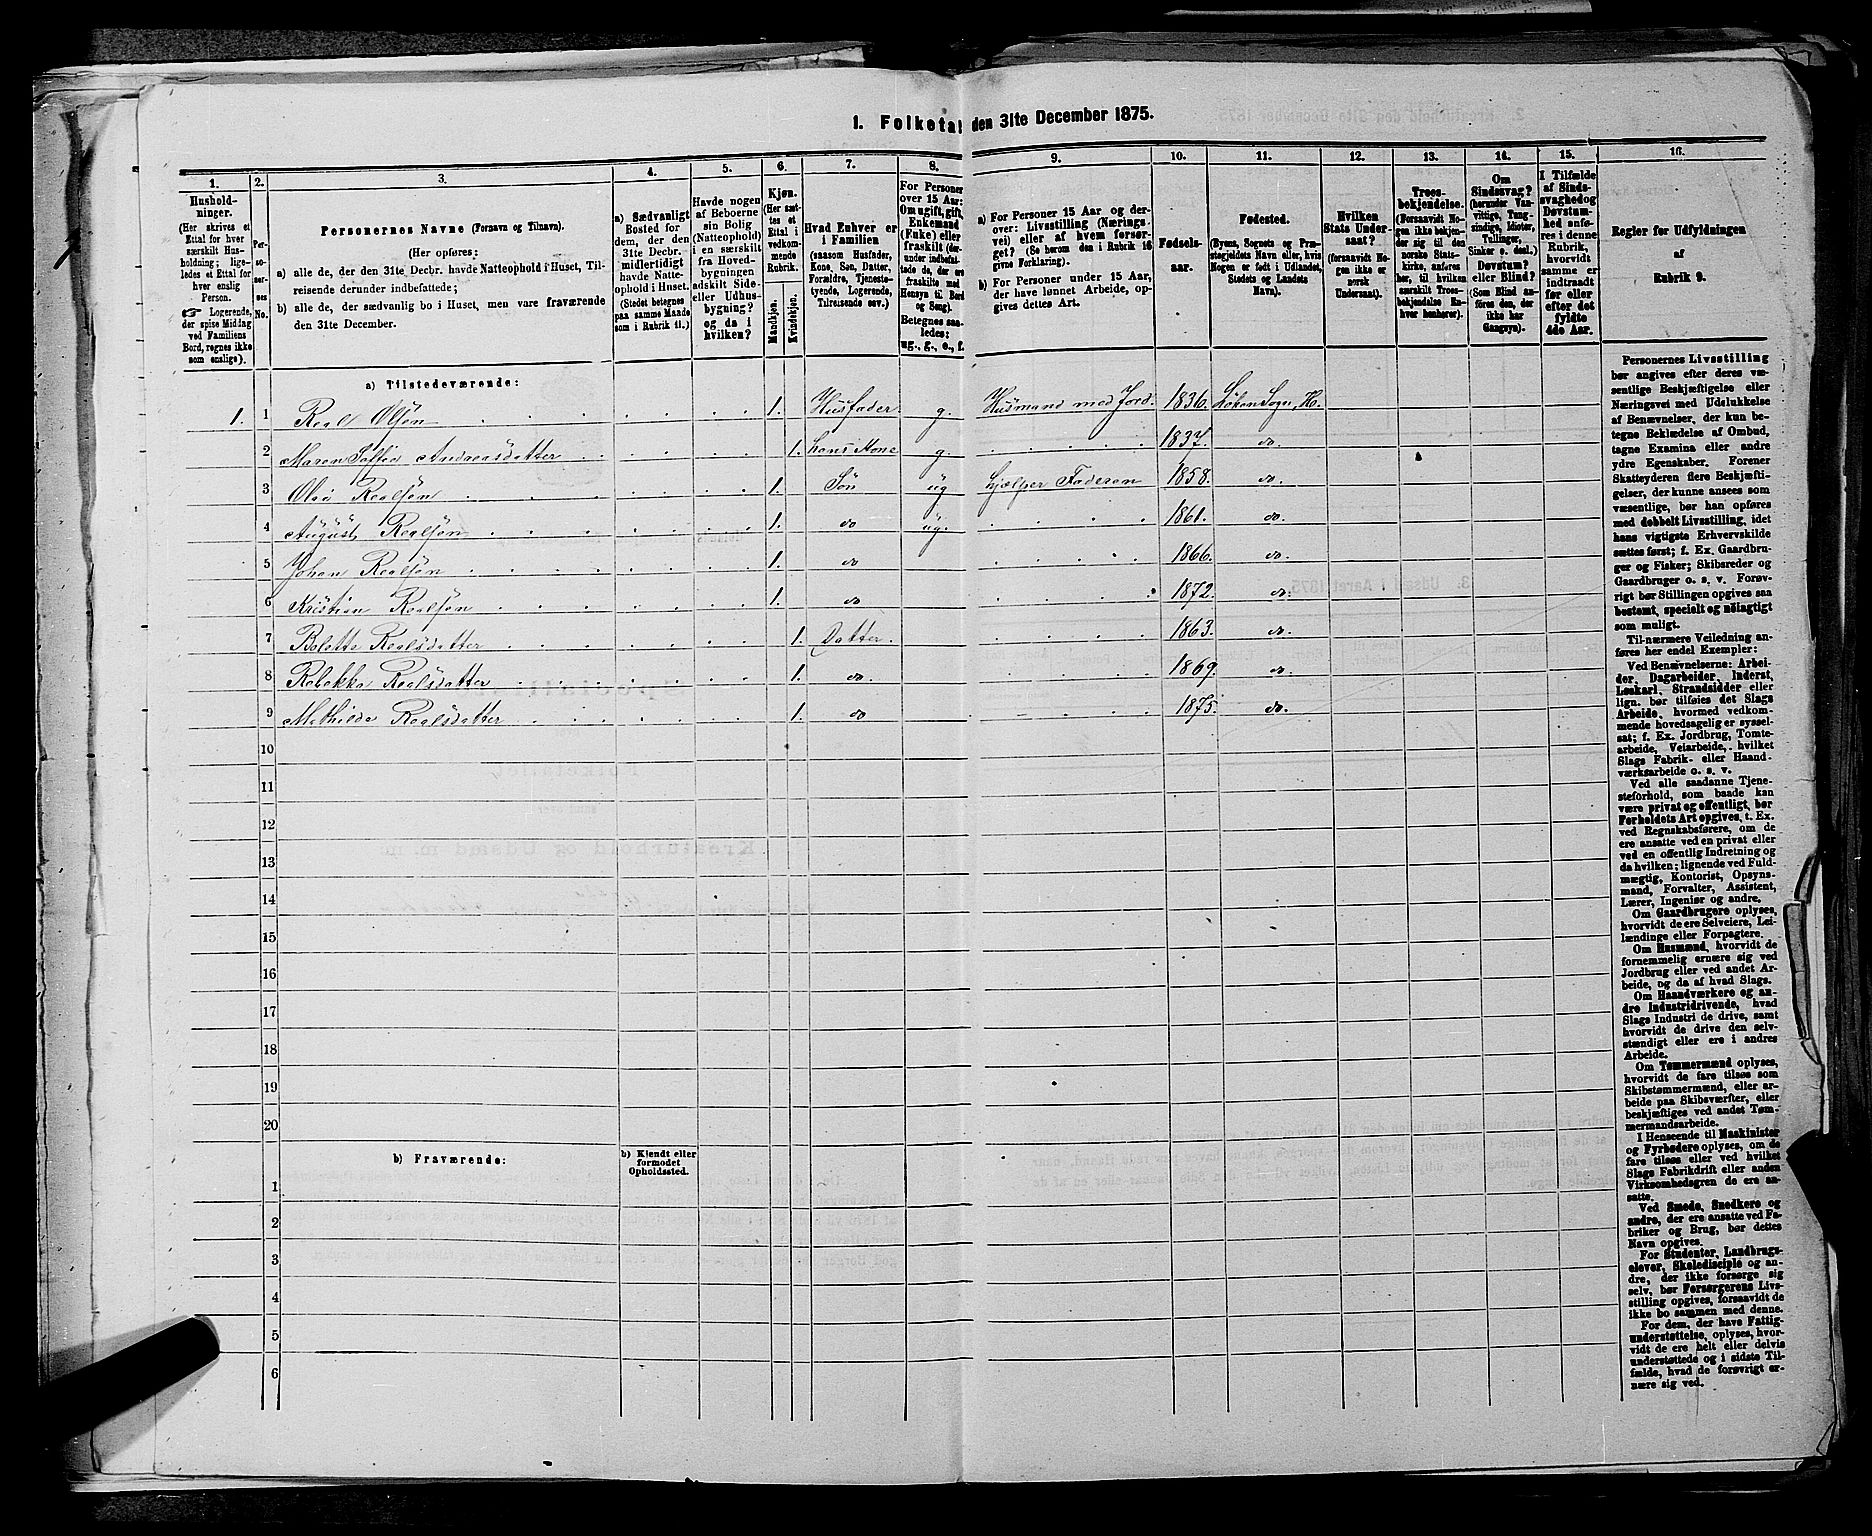 1. Folketal den 31te December 1875.
1. 2. 3. 4. 5. 6. 7. 8. 9. 10. 11. 12. 13. 14. 15. 16.
Hushold-
ninger.
(Her skrives et
Ettal for hver
særskilt Hus-
holdning; lige-
ledes et Ettal for
hver enslig
Person.
☞ Logerende,
der spise Middag
ved Familiens
Bord, regnes ikke
som enslige).
Per-
so-
ner-
nes
No.
Personernes Navne (Fornavn og Tilnavn).
(Her opføres:
a) alle de, der den 31te Decbr. havde Natteophold i Huset, Til-
reisende derunder indbefattede;
b) alle de, der sædvanlig bo i Huset, men vare fraværende
den 31te December.
a) Sædvanligt
Bosted for
dem, der den
31te Decbr.
midlertidigt
havde Natte-
ophold i Huset.
(Stedet betegnes
paa samme Maade
som i Rubrik 11.)
Havde nogen
af Beboerne
sin Bolig
(Natteophold)
i en særskilt
fra Hoved-
bygningen
adskilt Side-
eller Udhus-
bygning?
og da i
hvilken?
Kjøn.
(Her sæt-
tes et
Ettal i
vedkom-
mende
Rubrik.
Mandkjøn.
Kvindekjøn.
Hvad Enhver er
i Familien
(saasom Husfader,
Kone, Søn, Datter,
Forældre, Tjeneste-
tyende, Logerende,
Tilreisende osv.)
For Personer
over 15 Aar:
Om ugift, gift,
Enkemand
(Enke) eller
fraskilt (der-
under indbefat-
tede de, der ere
fraskilte med
Hensyn til Bord
og Seng).
Betegnes saa-
ledes:
ug., g., e., f.
a) For Personer 15 Aar og der-
over: Livsstilling (Nærings-
vei) eller af hvem forsør-
get? (Se herom den i Rubrik 16
givne Forklaring).
b) For Personer under 15 Aar,
der have lønnet Arbeide, op-
gives dettes Art.
Fødsels-
aar.
Fødested.
(Byens, Sognets og Præ-
stegjeldets Navn eller, hvis
Nogen er født i Udlandet,
Stedets og Landets
Navn).
Hvilken
Stats Under-
saat?
(forsaavidt No-
gen ikke er
norsk
Undersaat).
Troes-
bekjendelse.
(Forsaavidt No-
gen ikke bekjen-
der sig til den
norske Stats-
kirke, anføres
her, til hvilken
særskilt Troes-
bekjendelse En-
hver henhører).
Om
Sindssvag?
(herunder Van-
vittige, Tung-
sindige, Idioter,
Tullinger,
Sinker o. desl.)
Døvstum?
eller Blind?
(Som Blind an-
føres den, der
ikke har
Gangsyn).
I Tilfælde
af Sinds-
svaghed og
Døvstum-
hed anfø-
res i denne
Rubrik,
hvorvidt
samme er
indtraadt
før eller
efter det
fyldte
4de Aar.
Regler for Udfyldningen
af
Rubrik 9.
a) Tilstedeværende:
1. 1 Real Olsøn 1. Husfader g. Husmand med Jord. 1836. Høken Sogn, H.
2 Maren Andreasdatter 1. hans Kone g. 1837. do.
3 Olaf Realsøn 1. Søn ug Hjælper Faderen 1858. do.
4 August Realsøn 1. do ug. 1861. do.
5 Johan Realsøn 1. do 1866. do.
6 Kristian Realsøn 1. do 1872. do.
7 Bolette Realsdatter 1. Datter. 1863. do.
8 Rebekka Realsdatter 1. do. 1869. do.
9 Mathilde Realsdatter 1. do 1875. do.
10
11
12
13
14
15
16
17
18
19
20
b) Fraværende:
b) Kjendt eller
formodet
Opholdssted.
1
2
3
4
5
6
Personernes Livsstilling
bør angives efter deres væ-
sentlige Beskjæftigelse eller
Næringsvei med Udelukkelse
af Benævnelser, der kun be-
tegne Beklædelse af Ombud,
tagne Examina eller andre
ydre Egenskaber. Forener
Skatteyderen flere Beskjæfti-
gelser, der kunne ansees som
væsentlige, bør han opføres
med dobbelt Livsstilling, idet
hans vigtigste Erhvervskilde
sættes først; f. Ex. Gaardbru-
ger og Fisker; Skibsreder og
Gaardbruger o. s. v. Forøv-
rigt bør Stillingen opgives saa
bestemt, specielt og nøiagtigt
som muligt.
Til nærmere Veiledning an-
føres her endel Exempler:
Ved Benævnelserne: Arbei-
der, Dagarbeider, Inderst,
Løskarl, Strandsidder eller
lign. bør tilføies det Slags
Arbeide, hvormed vedkom-
mende hovedsagelig er syssel-
sat; f. Ex. Jordbrug, Tomte-
arbeide, Veiarbeide, hvilket
Slags Fabrik- eller Haand-
værksarbeide o. s. v.
Ved alle saadanne Tjene-
steforhold, som baade kan
være privat og offentligt, bør
Forholdets Art opgives, t. Ex.
ved Regnskabsførere, om de
ere ansatte ved en privat eller
ved en offentlig Indretning og
da hvilken; lignende ved Fuld-
mægtig, Kontorist, Opsyns-
mand, Forvalter, Assistent,
Lærer, Ingeniør og andre.
Om Gaardbrugere oplyses,
hvorvidt de ere Selveiere, Lei-
lændinge eller Forpagtere.
Om Husmænd, hvorvidt de
fornemmelig ernære sig ved
Jordbrug eller ved andet Ar-
beide, og da af hvad Slags.
Om Haandværkere og an-
dre Industridrivende, hvad
Slags Industri de drive, samt
hvorvidt de drive den selv-
stændigt eller ere i andres
Arbeide.
Om Tømmermænd oplyses,
hvorvidt de fare tilsøs som
Skibstømmermænd, eller ar-
beide paa Skibsværfter, eller
beskjæftiges ved andet Tøm-
mermandsarbeide.
I Henseende til Maskinister
og Fyrbødere oplyses, om de
fare tilsøs eller ved hvilket
Slags Fabrikdrift eller anden
Virksomhedsgren de ere an-
satte.
Ved Smede, Snedkere og
andre, der ere ansatte ved Fa-
briker og Brug, bør dettes
Navn opgives.
For Studenter, Landbrugs-
elever, Skoledisciple og an-
dre, der ikke forsørge sig
selv, bør Forsørgerens Livs-
stilling opgives, forsaavidt de
ikke bo sammen med denne.
For dem, der have Fattig-
understøttelse, oplyses, hvor-
vidt de ere helt eller delvis
understøttede og i sidste Til-
fælde, hvad de forøvrigt er-
nære sig ved.